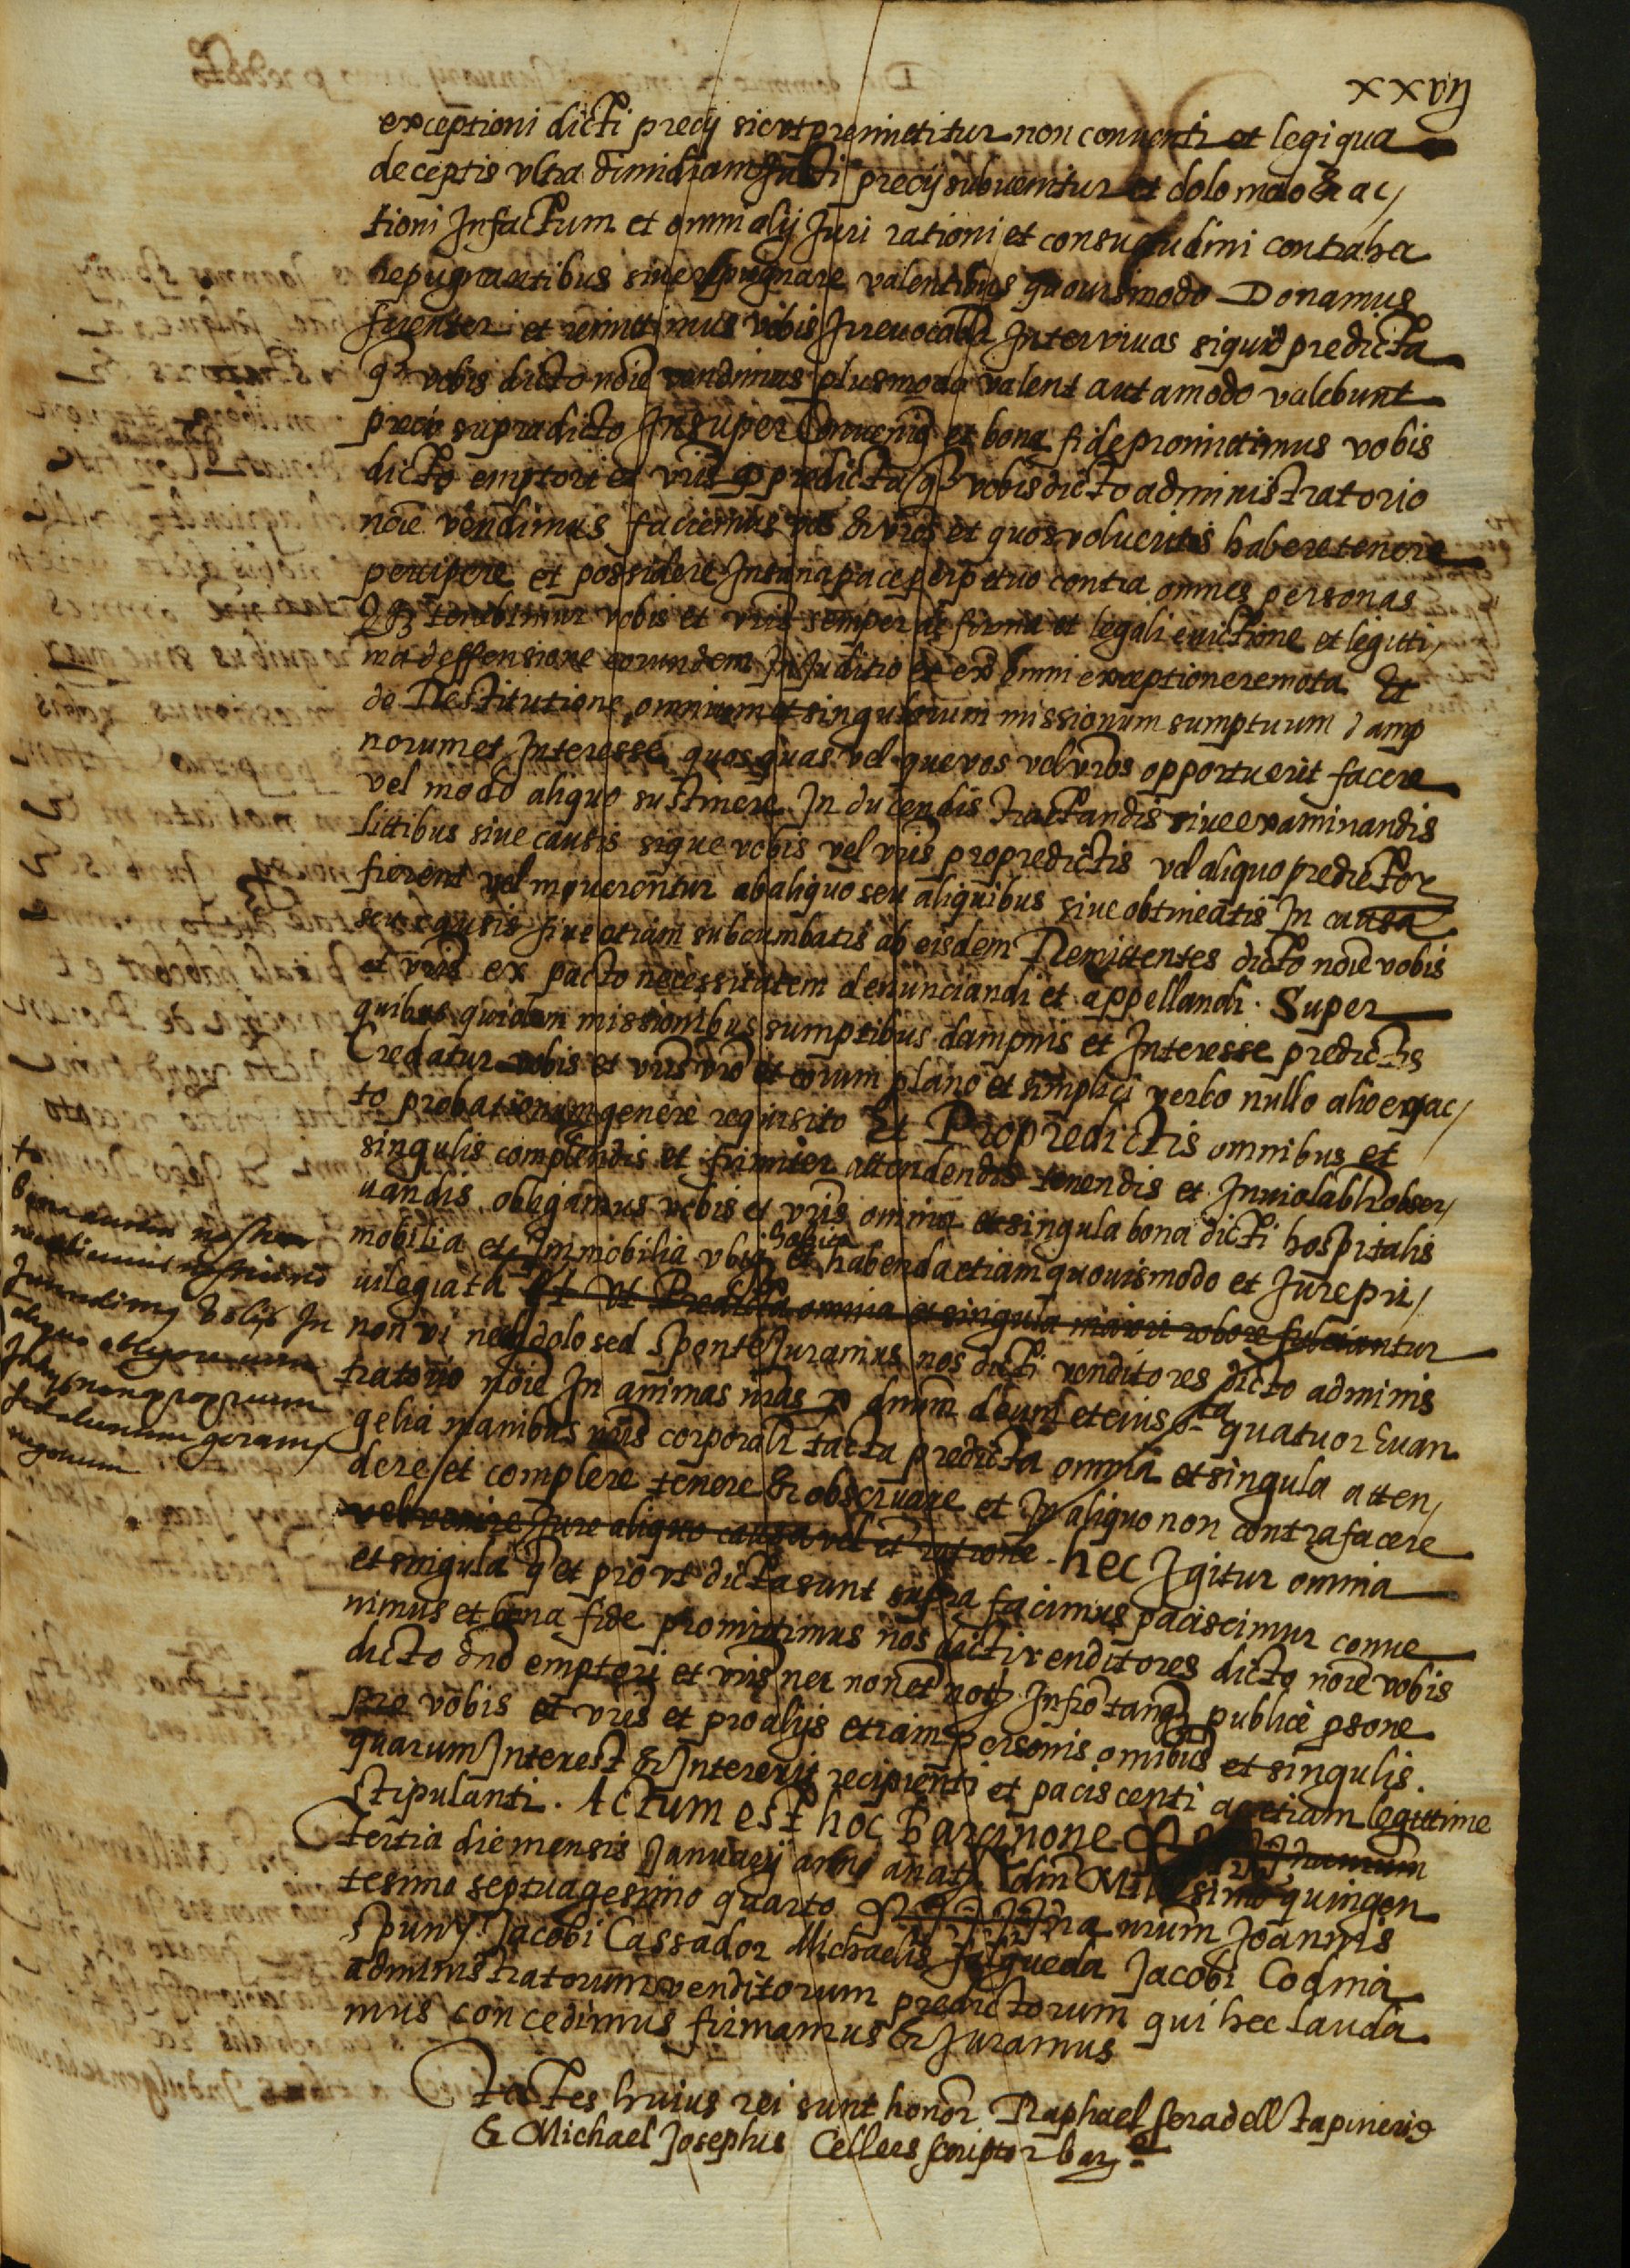 xxvij
exceptioni dicti precij sicut premittitur non conventi et legi qua
deceptis ultra dimidiam justi precij subvenitur et dolo malo & ac/
tioni Infactum et omni alij Juri rationi et consuetudini contra hec
repugnantibus sive repugnare valentibus quovismodo Donamus
et remittimus vobis Irrevocabilr Inter vivos siquid predicta
q̃ vobis dicto noie vendimus plus modo valent aut amodo valebunt
precio supradicto Insuper Convenimꝰ et bona fide promittimus vobis
dicto emptori et vr̃is ꝙ predicta q̃ vobis dicto administratorio
noie vendimus faciemus vos & vr̃os et quos volueritis habere tenere
percipere et possidere In sana pace perpetuo contra omnes personas
Qꝫ tenebimur vobis et vr̃is semper de firma et legali evictione et legitti/
ma deffensione eorundem In Juditio et ex̃ omni exceptione remota Et
de Restitutione omnium et singulorum missionum sumptuum damp
norum et Interesse quos quas vel que vos vel vr̃os opportuerit facere
vel modo aliquo sustinere In ducendis tractandis sive examinandis
littibus sive causis sique vobis vel vr̃is pro predictis vel aliquo predictor
fierent vel moverentur ab aliquo seu aliquibus sive obtineatis In causa
seu causis sive etiam subcumbatis ab eisdem Remittentes dicto noie vobis
et vr̃is ex pacto necessitatem denunciandi et appellandi. Super
quibus quidem missionibus sumptibus dampnis et Interesse predictis
Credatur vobis et vr̃is vr̃o et eorum plano et simplici verbo nullo alio exac/
to probationum genere requisito Et Pro predictis omnibus et
singulis complendis et firmiter attendendis tenendis et Inviolabilr obser/
vandis obligamus vobis et vr̃is omnia et singula bona dicti hospitalis
mobilia et Immobilia ubiqꝫ habita et habenda etiam quovismodo et Jure pri/
vilegiata Et Ut Predicta omnia et singula maiori robore fulciantur
non vi nec dolo sed sponte Juramus nos dicti venditores dicto adminis
tratorio noie In animas nr̃as p dnum deum et eius sta quatuor Evan
gelia manibus nr̃is corporalr tacta predicta omnia et singula atten/
dere et complere tenere & observare et In aliquo non contrafacere
vel venire Jure aliquo causa vel et ratione. hec Igitur omnia
et singula q̃ et prout dicta sunt supra facimus paciscimur conve
nimus et bona fide promittimus nos dicti venditores dicto noie vobis
dicto dno emptori et vr̃is nec non et not Infro tanqꝫ publice psone
pro vobis et vr̃is et pro alijs etiam personis omnibus et singulis
quarum Interest & Intererit recipienti et paciscenti ac etiam legittime
stipulanti. Actum est hoc Barcinone
Tertia die mensis Januarij anno a nat dni Millesimo quingen
tesimo septuagesimo quarto Joannis
Spuny Jacobi Cassador Michaelis Falgueda Jacobi Codina
administratorum venditorum predictorum qui hec lauda
mus concedimus firmamus & Juramus
Testes huius rei sunt honor Raphael seradell tapinerius
& Michael Josephus Cellers scriptor bar
bona autem nostra
aliquo obligare cum
non proprium
sed alienum geramus
negotium